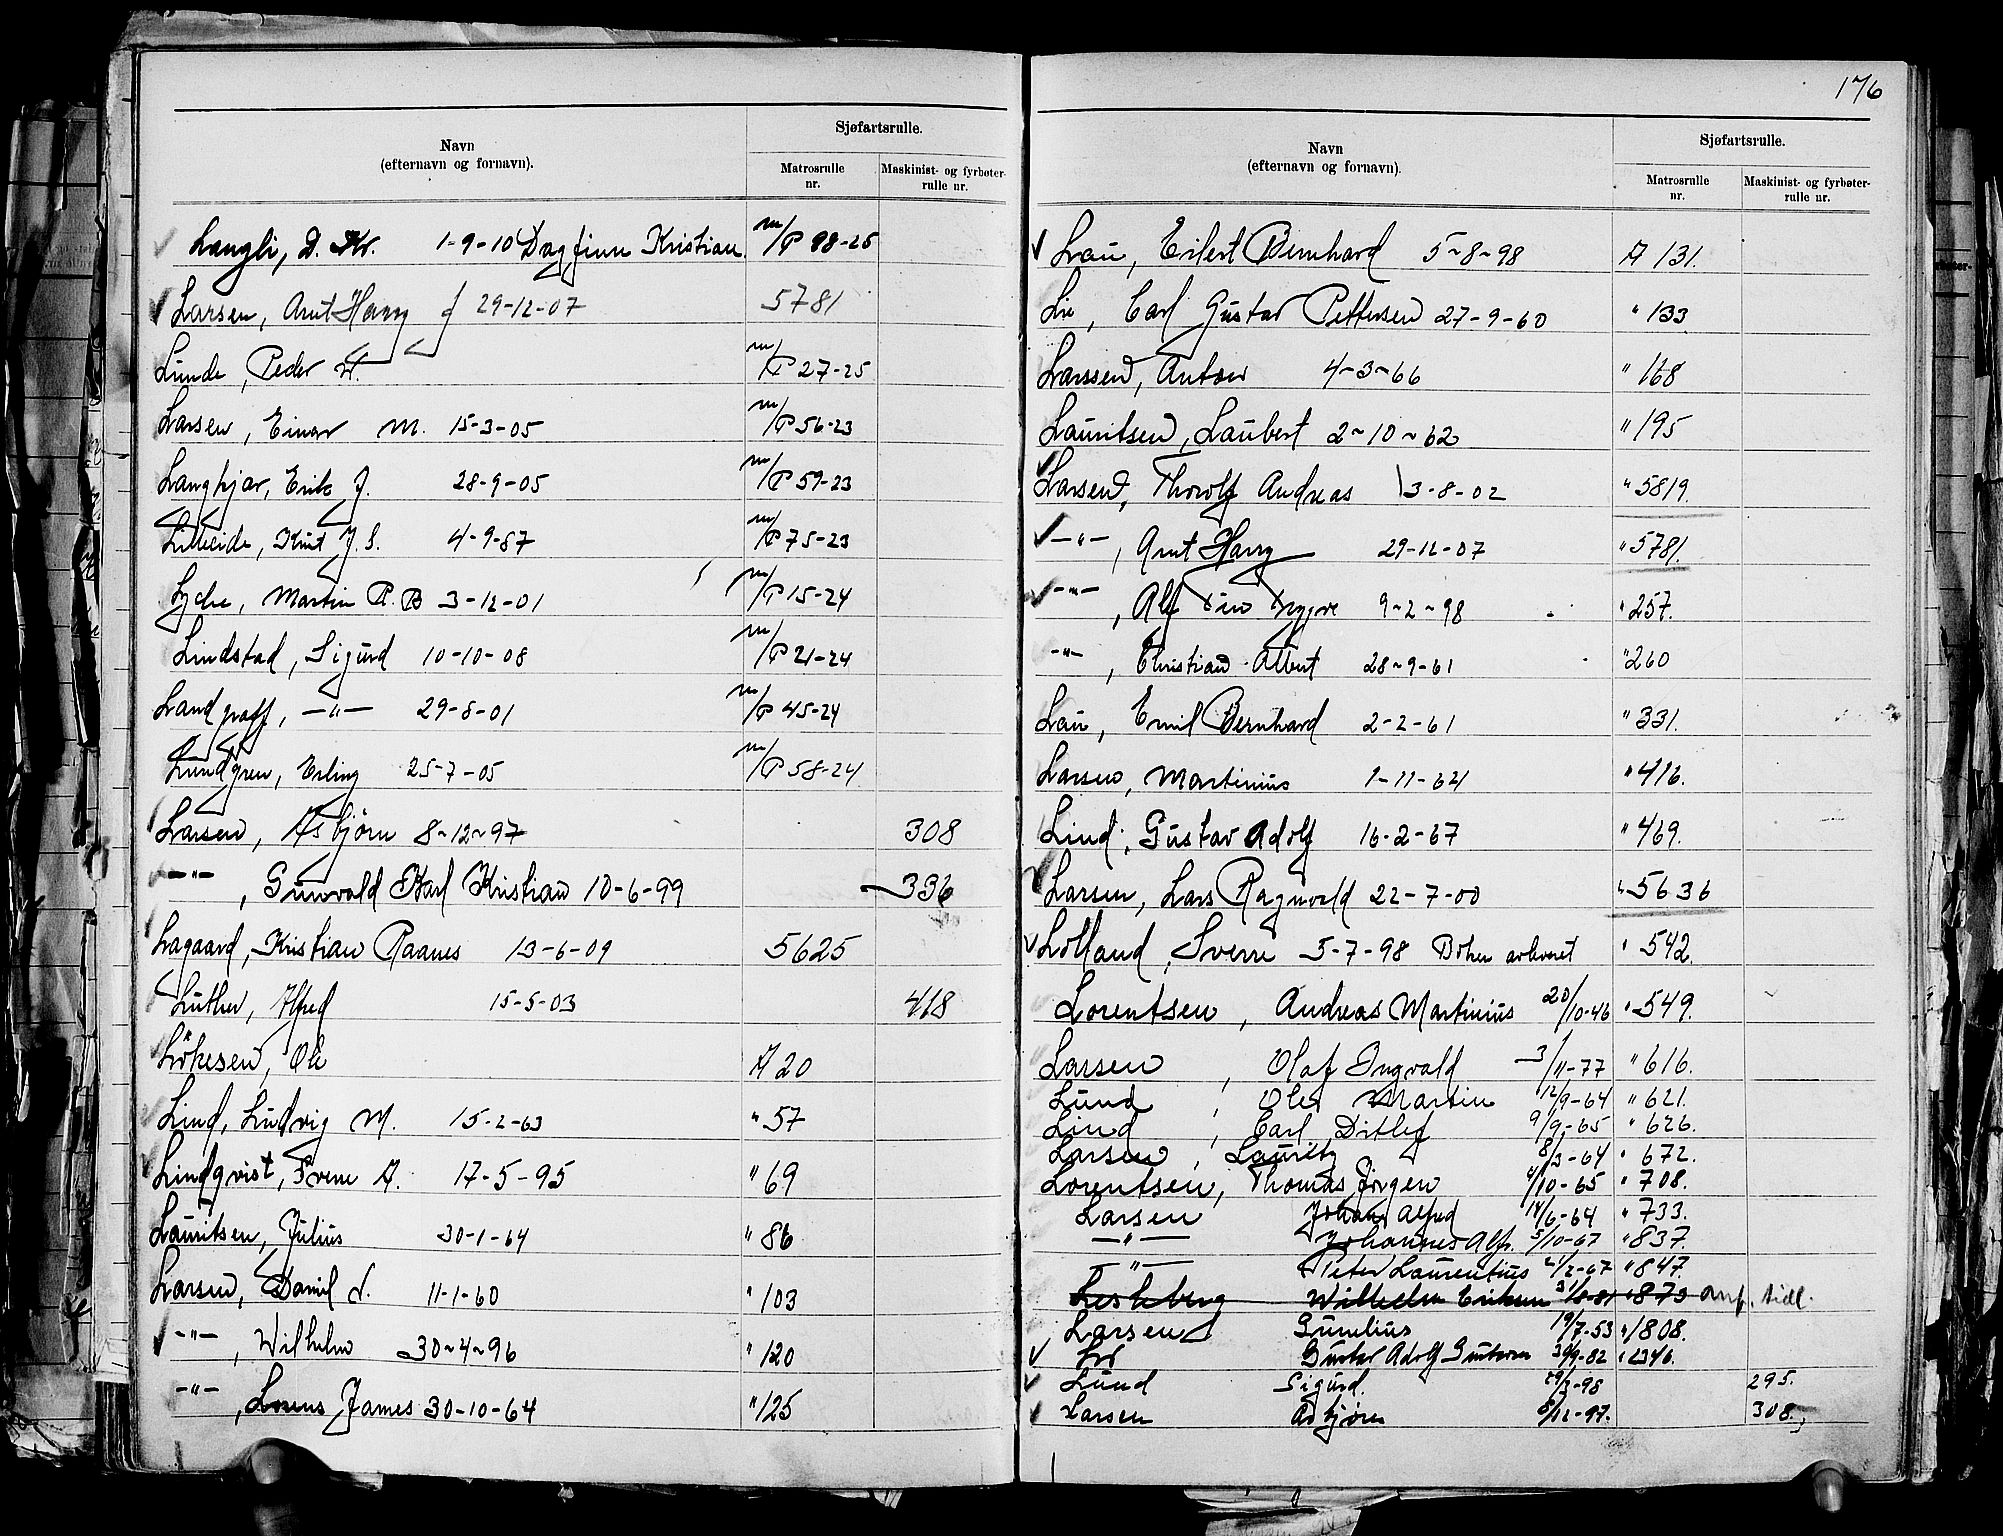 176
Navn
(efternavn og fornavn).
Sjøfartsrulle.
Matrosrulle nr.
Maskinist- og fyrbøter-rulle nr.
Langli, D. Kr. 1-9-10 Dagfinn Kristian m/P 98-25
Larsen, Arnt Harry 29-12-07 5781
Lunde, Peder m/P 27-25
Larsen, Einar M. 15-3-05 m/P 56-23
Langkjær, Erik J. 28-9-05 m/P 59-23
Lilleeide, Knut J. S. 4-9-87 m/P 75-23
Lyche, Martin R. B 3-12-01 m/P 15-24
Lindstad, Sigurd 10-10-08 m/P 21-24
Landgraff, -"- 29-8-01 m/P 45-24
Lundgren, Erling 25-7-05 m/P 58-24
Larsen, Asbjørn 8-12-97 308
-"-, Gunvald Karl Kristian 10-6-99 336
Lagaard, Kristian Raanes 13-6-09 5625
Luther, Alfred 15-5-03 418
Lökesen, Ole A 20
Lind, Ludvig M. 15-2-63 " 57
Lindqvist, Svenn A. 17-5-95 " 69
Lauritsen, Julius 30-1-64 " 86
Larsen, Daniel L. 11-1-60 " 103
-"-, Wilhelm 30-4-96 " 120
-"-, Lorens James 30-10-64 " 125
Navn
(efternavn og fornavn).
Sjøfartsrulle.
Matrosrulle nr.
Maskinist- og fyrbøter-rulle nr.
Lau, Eilert Bernhard 5-8-98 A 131.
Lie, Carl Gustav Pettersen 27-9-60 " 133
Larssen, Anton 4-3-66 " 168
Lauritsen, Laubert 2-10-62 " 195
Larsen, Thorolf Andreas 13-8-02 " 5819.
-"-, Arnt Harry 29-12-07 " 5781.
-"-, Alf Trygve 9-2-98 " 257.
-"-, Christian Albert 28-9-61 " 260
Lau, Emil Bernhard 2-2-61 " 331.
Larsen, Martinius 1-11-64 " 416.
Lind, Gustav Adolf 16-2-67 " 469.
Larsen, Lars Ragnvald 22-7-00 " 5636
Lolland, Sverre 5-7-98 Boken avleveret " 542.
Lorentsen, Andreas Martinius 20/10-46 " 549.
Larsen, Olaf Ingvald 3/11-77 " 616.
Lund, Oles Martin 12/9-64 " 621.
Lind, Carl Ditlef 9/9-65 " 626.
Larsen, Lauritz 8/3-64 " 672.
Lorentsen, Thomas Jörgen 4/10-65 " 708.
Larsen Johan Alfred 14/6-64 " 733.
-"- Johannes Alfr. 5/10-67 " 837.
-"- Peter Laurentius 21/2-67 " 847.
Leshberg Wilhelm Eriksen 31/8-81 " 873 anf. tidl.
Larsen Gunelius 19/7-53 " 1808.
Lie Gustav Adolf Gustavsen 30/9-82 " 2346.
Lund Sigurd. 29/3-98 295.
Larsen Asbjørn 8/12-97. 308.